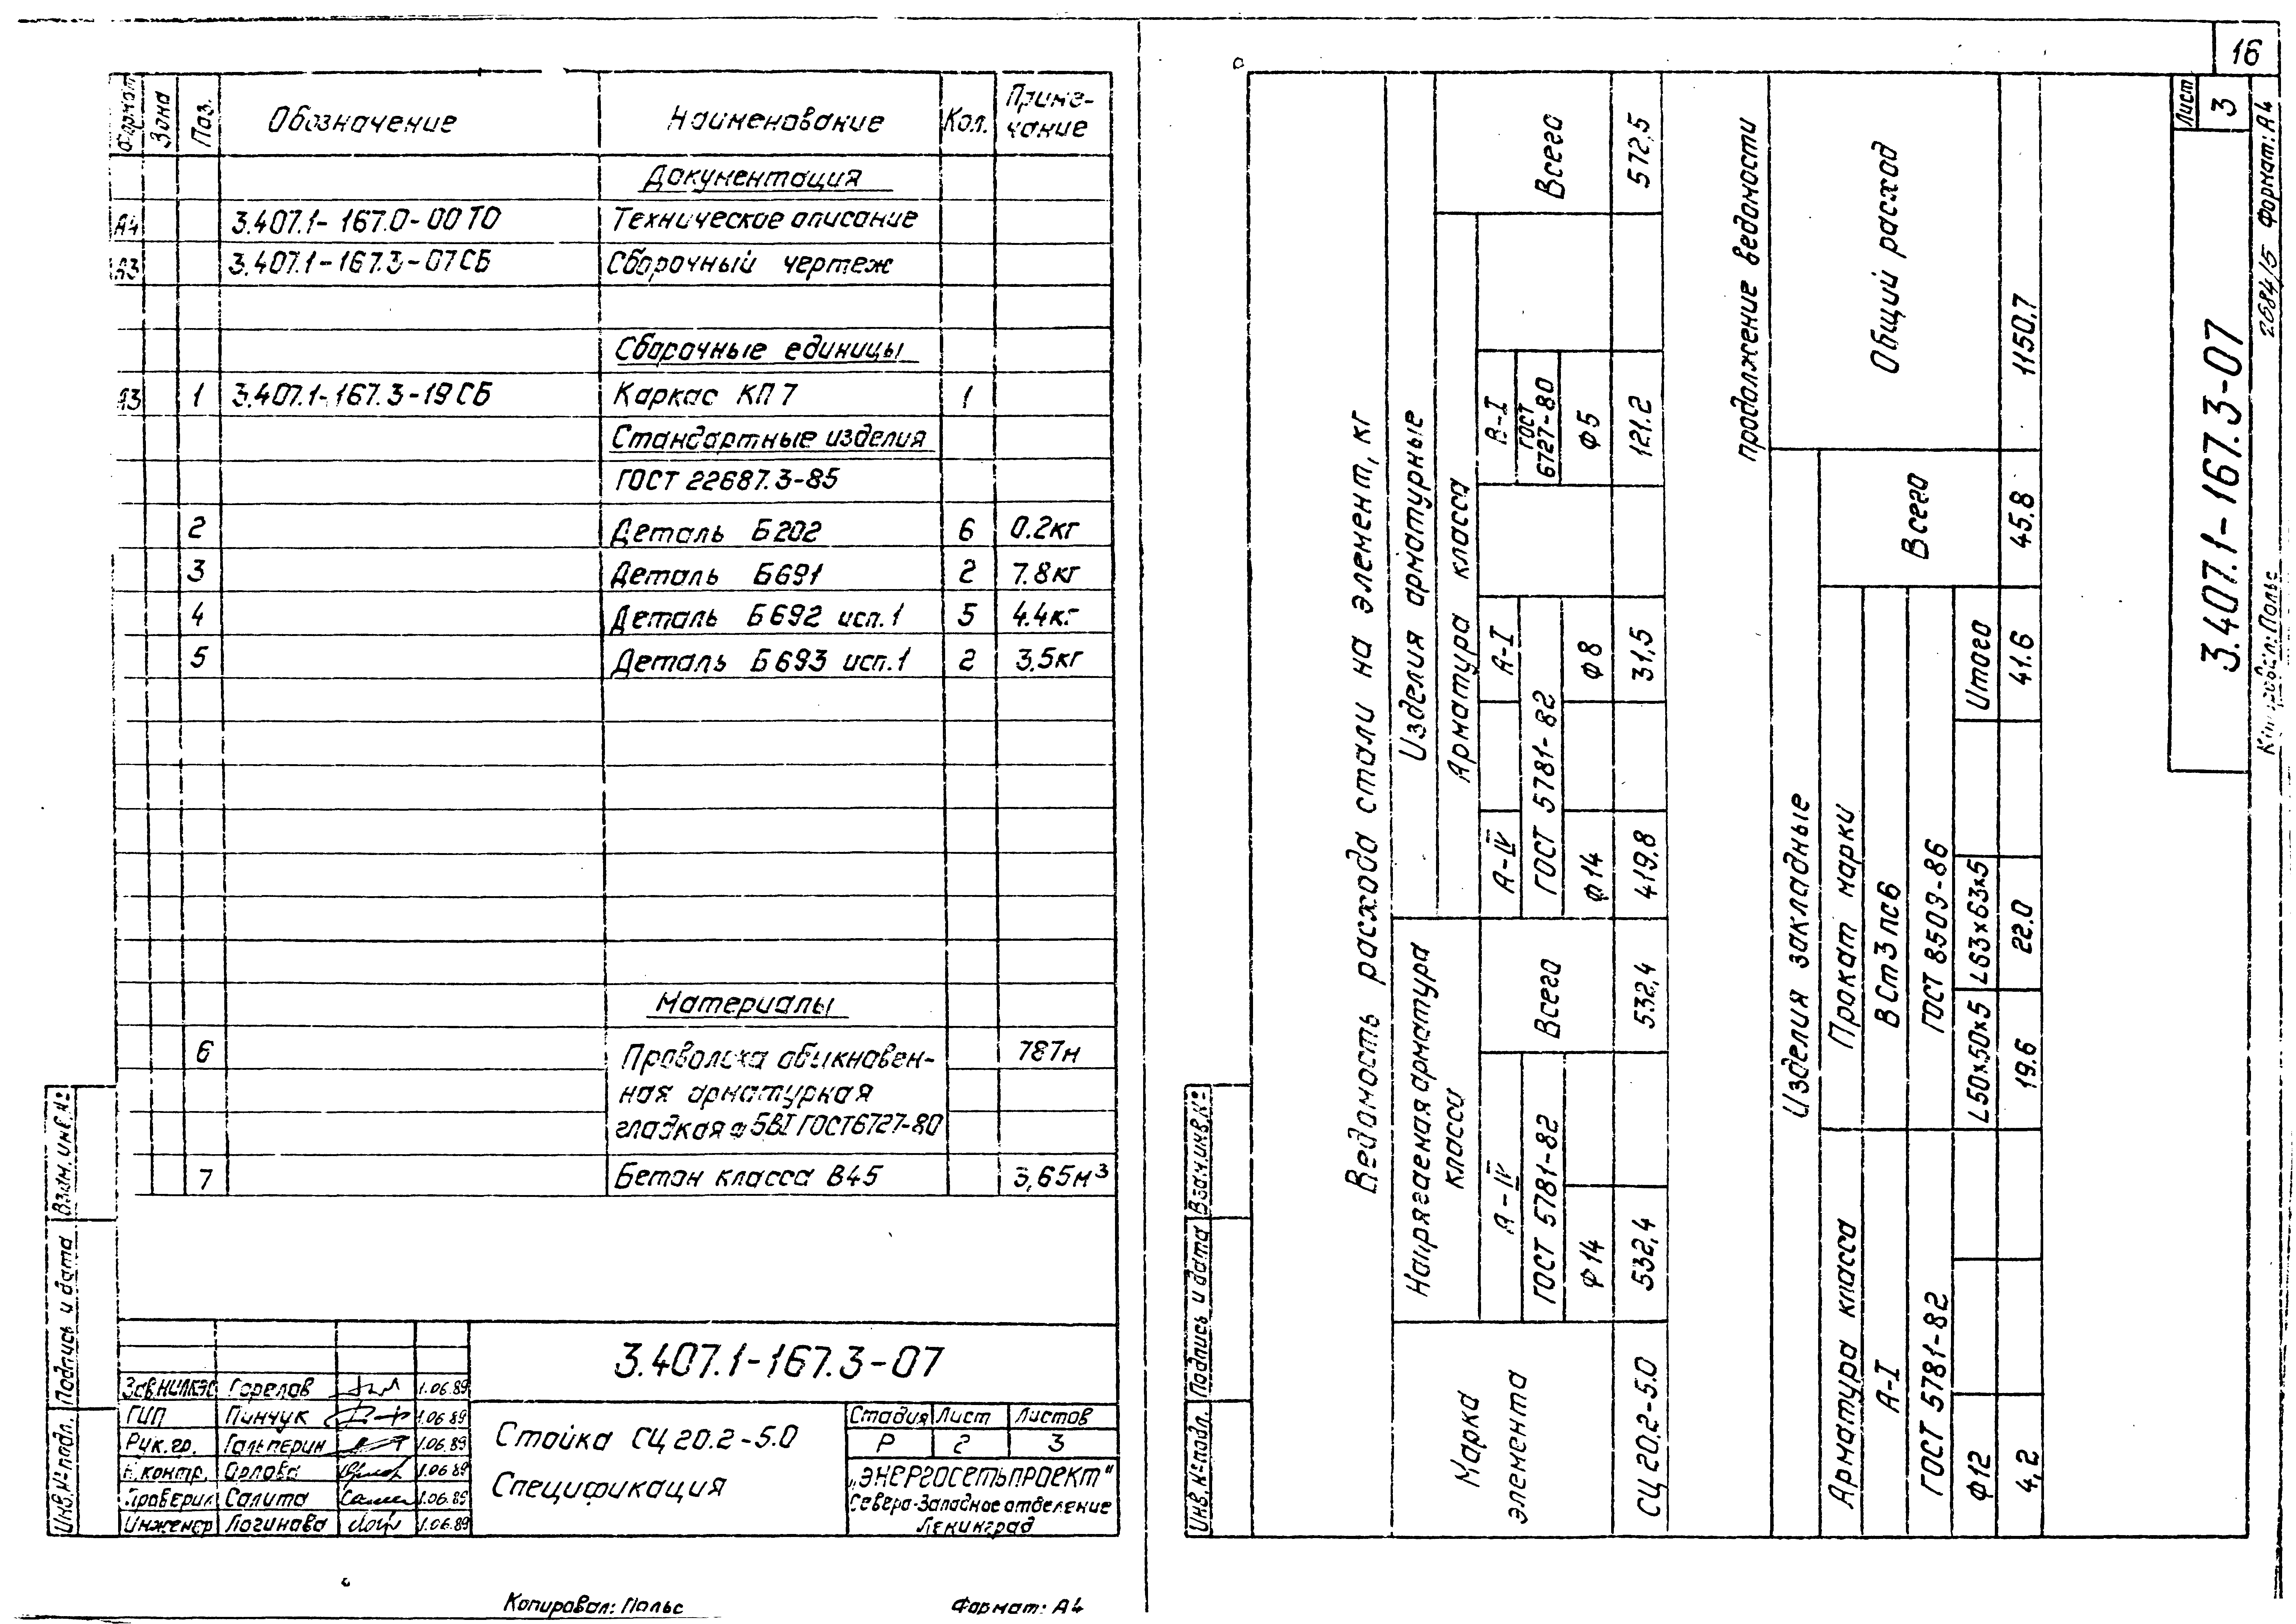 Формат Зона Поз. Обозначение Наименование Кол. Примечание
Документация
А4 3.407.1-167.0-00ТО Техническое описание
А3 3.407.1-167.3-07СБ Сборочный чертеж
Сборочные единицы
А3 1 3.407.1-167.3-19СБ Каркас КП 7 1
Стандартные изделия
ГОСТ 22687.3-85
2 Деталь Б202 6 0.2кг
3 Деталь Б691 2 7.8кг
4 Деталь Б692 исп.1 5 4.4кг
5 Деталь Б693 исп.1 2 3.5кг
Материалы
6 Проволока обыкновен- 787м
ная арматурная
гладкая ф5ВI ГОСТ6727-80
7 Бетон класса В45 3,65м³
Инв.№подл. Подпись и дата Взам.инв.№
3.407.1-167.3-07
Зав.НИЛКЭС Горелов 1.06.89
ГИП Пинчук 1.06.89
Рук.гр. Гальперин 1.06.89
Н.контр. Орлова 1.06.89
Проверил Салита 1.06.89
Инженер Логинова 1.06.89
Стойка СЦ20.2-5.0
Спецификация
Стадия Лист Листов
Р 2 3
„Энергосетьпроект"
Северо-Западное отделение
Ленинград
Копировал: Польс Формат: А4
16
Ведомость расхода стали на элемент, кг
Марка
элемента
Напрягаемая арматура
класса
А-IV
ГОСТ 5781-82
Ф14
Всего
Изделия арматурные
Арматура класса
А-IV А-I В-I
ГОСТ 5781-82 ГОСТ
6727-80
Ф14 Ф8 Ф5
Всего
СЦ20.2-5.0 532,4 532,4 419,8 31,5 121.2 572,5
продолжение ведомости
Изделия закладные
Общий расход
Арматура класса
А-I
ГОСТ 5781-82
Ф12
Прокат марки
ВСт3пс6
ГОСТ 8509-86
L50x50x5 L63x63x5 Итого
Всего
4,2 19.6 22.0 41.6 45.8 1150,7
Инв.№подл. Подпись и дата Взам.инв.№
3.407.1-167.3-07
Лист
3
Копировал: Польс 2684/5 Формат: А4